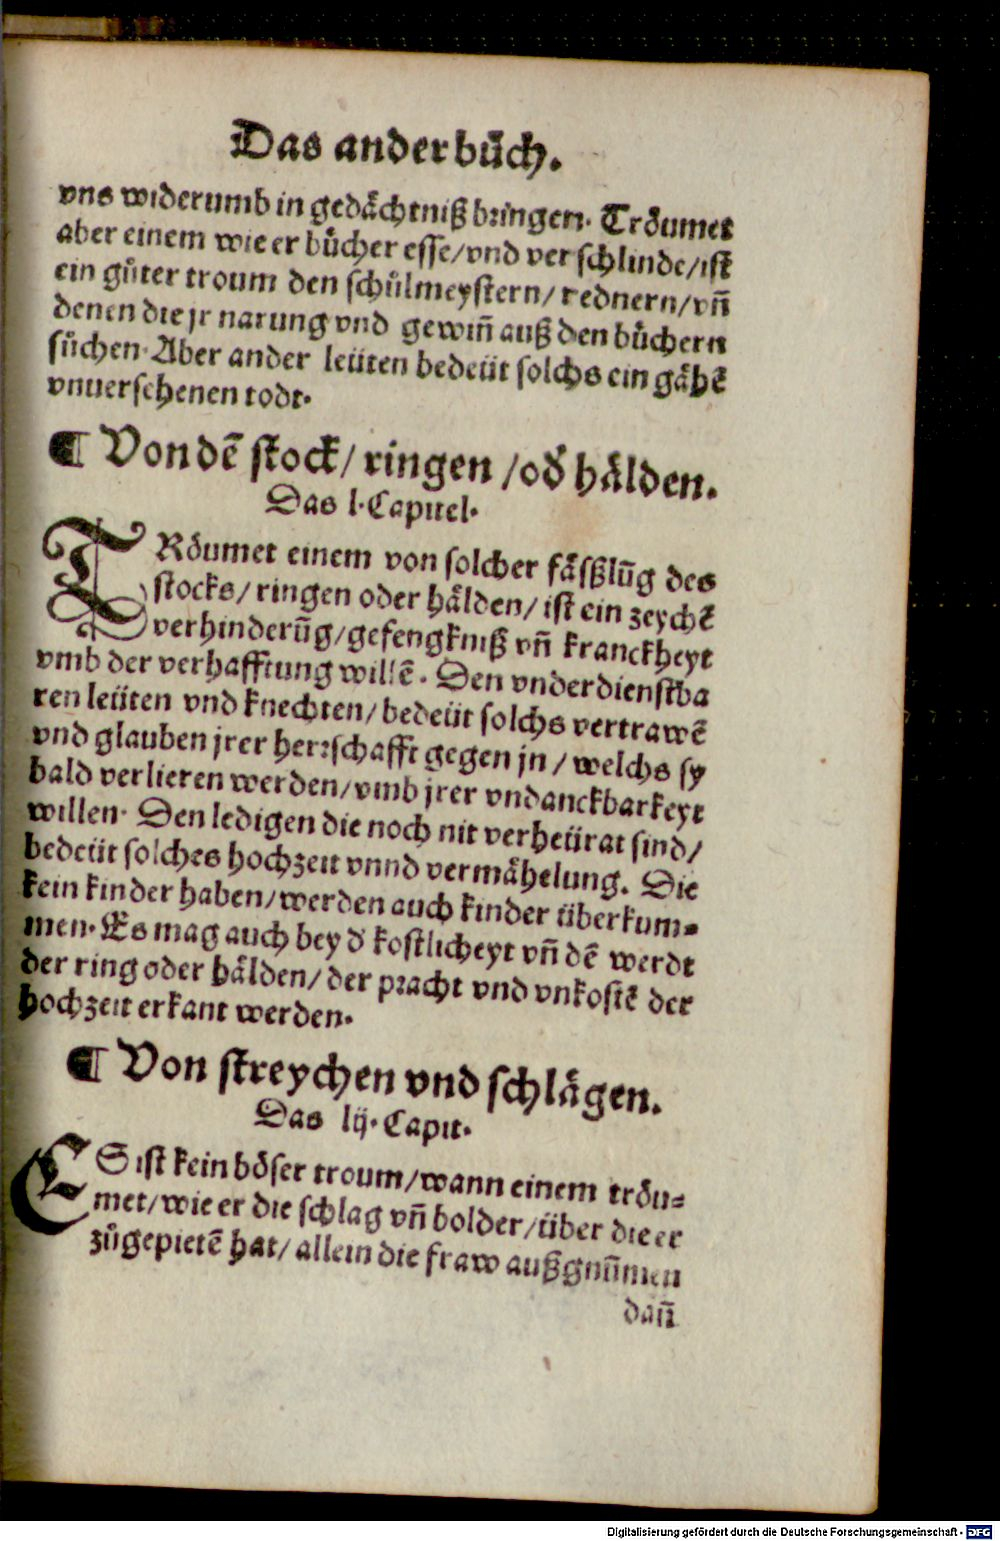 Das ander bůch.
vns widerumb in gedåchtniß bringen. Tröumet
aber einem wie er bůcher esse/vnd verschlinde/ist
ein gůter troum den schůlmeystern/ rednern/ vñ
denen die jr narung vnd gewiñ auß den bůchern
sůchen. Aber ander leüten bedeüt solchs ein gåhē
vnuersehenen todt.
¶ Von dē stock/ ringen /oď hålden.
Das l. Capitel.
TRöumet einem von solcher fåsßlūg des
stocks/ ringen oder hålden/ ist ein zeychē
verhinderūg/gefengkniß vñ kranckheyt
vmb der verhafftung willē. Den vnderdienstba
ren leüten vnd knechten/ bedeüt solchs vertrawē
vnd glauben jrer herrschafft gegen jn / welchs sy
bald verlieren werden/vmb jrer vndanckbarkeyt
willen. Den ledigen die noch nit verheürat sind/
bedeüt solches hochzeit vnnd vermåhelung. Die
kein kinder haben/werden auch kinder überkum⸗
men. Es mag auch bey ď kostlicheyt vñ dē werdt
der ring oder hålden/ der pracht vnd vnkostē der
hochzeit erkant werden.
¶ Von streychen vnd schlågen.
Das lij. Capit.
ES ist kein böser troum/wann einem tröu⸗
met/ wie er die schlag vñ bolder/über die er
zůgepietē hat/ allein die fraw außgnūmen
dañ
Digitalisierung gefördert durch die Deutsche Forschungsgemeinschaft - DFG